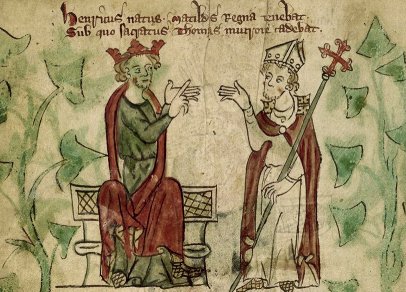 Henricus natus · Matildis Regna tenebat ·
Sub quo sacratus · Thomas mucrone cadebat ·